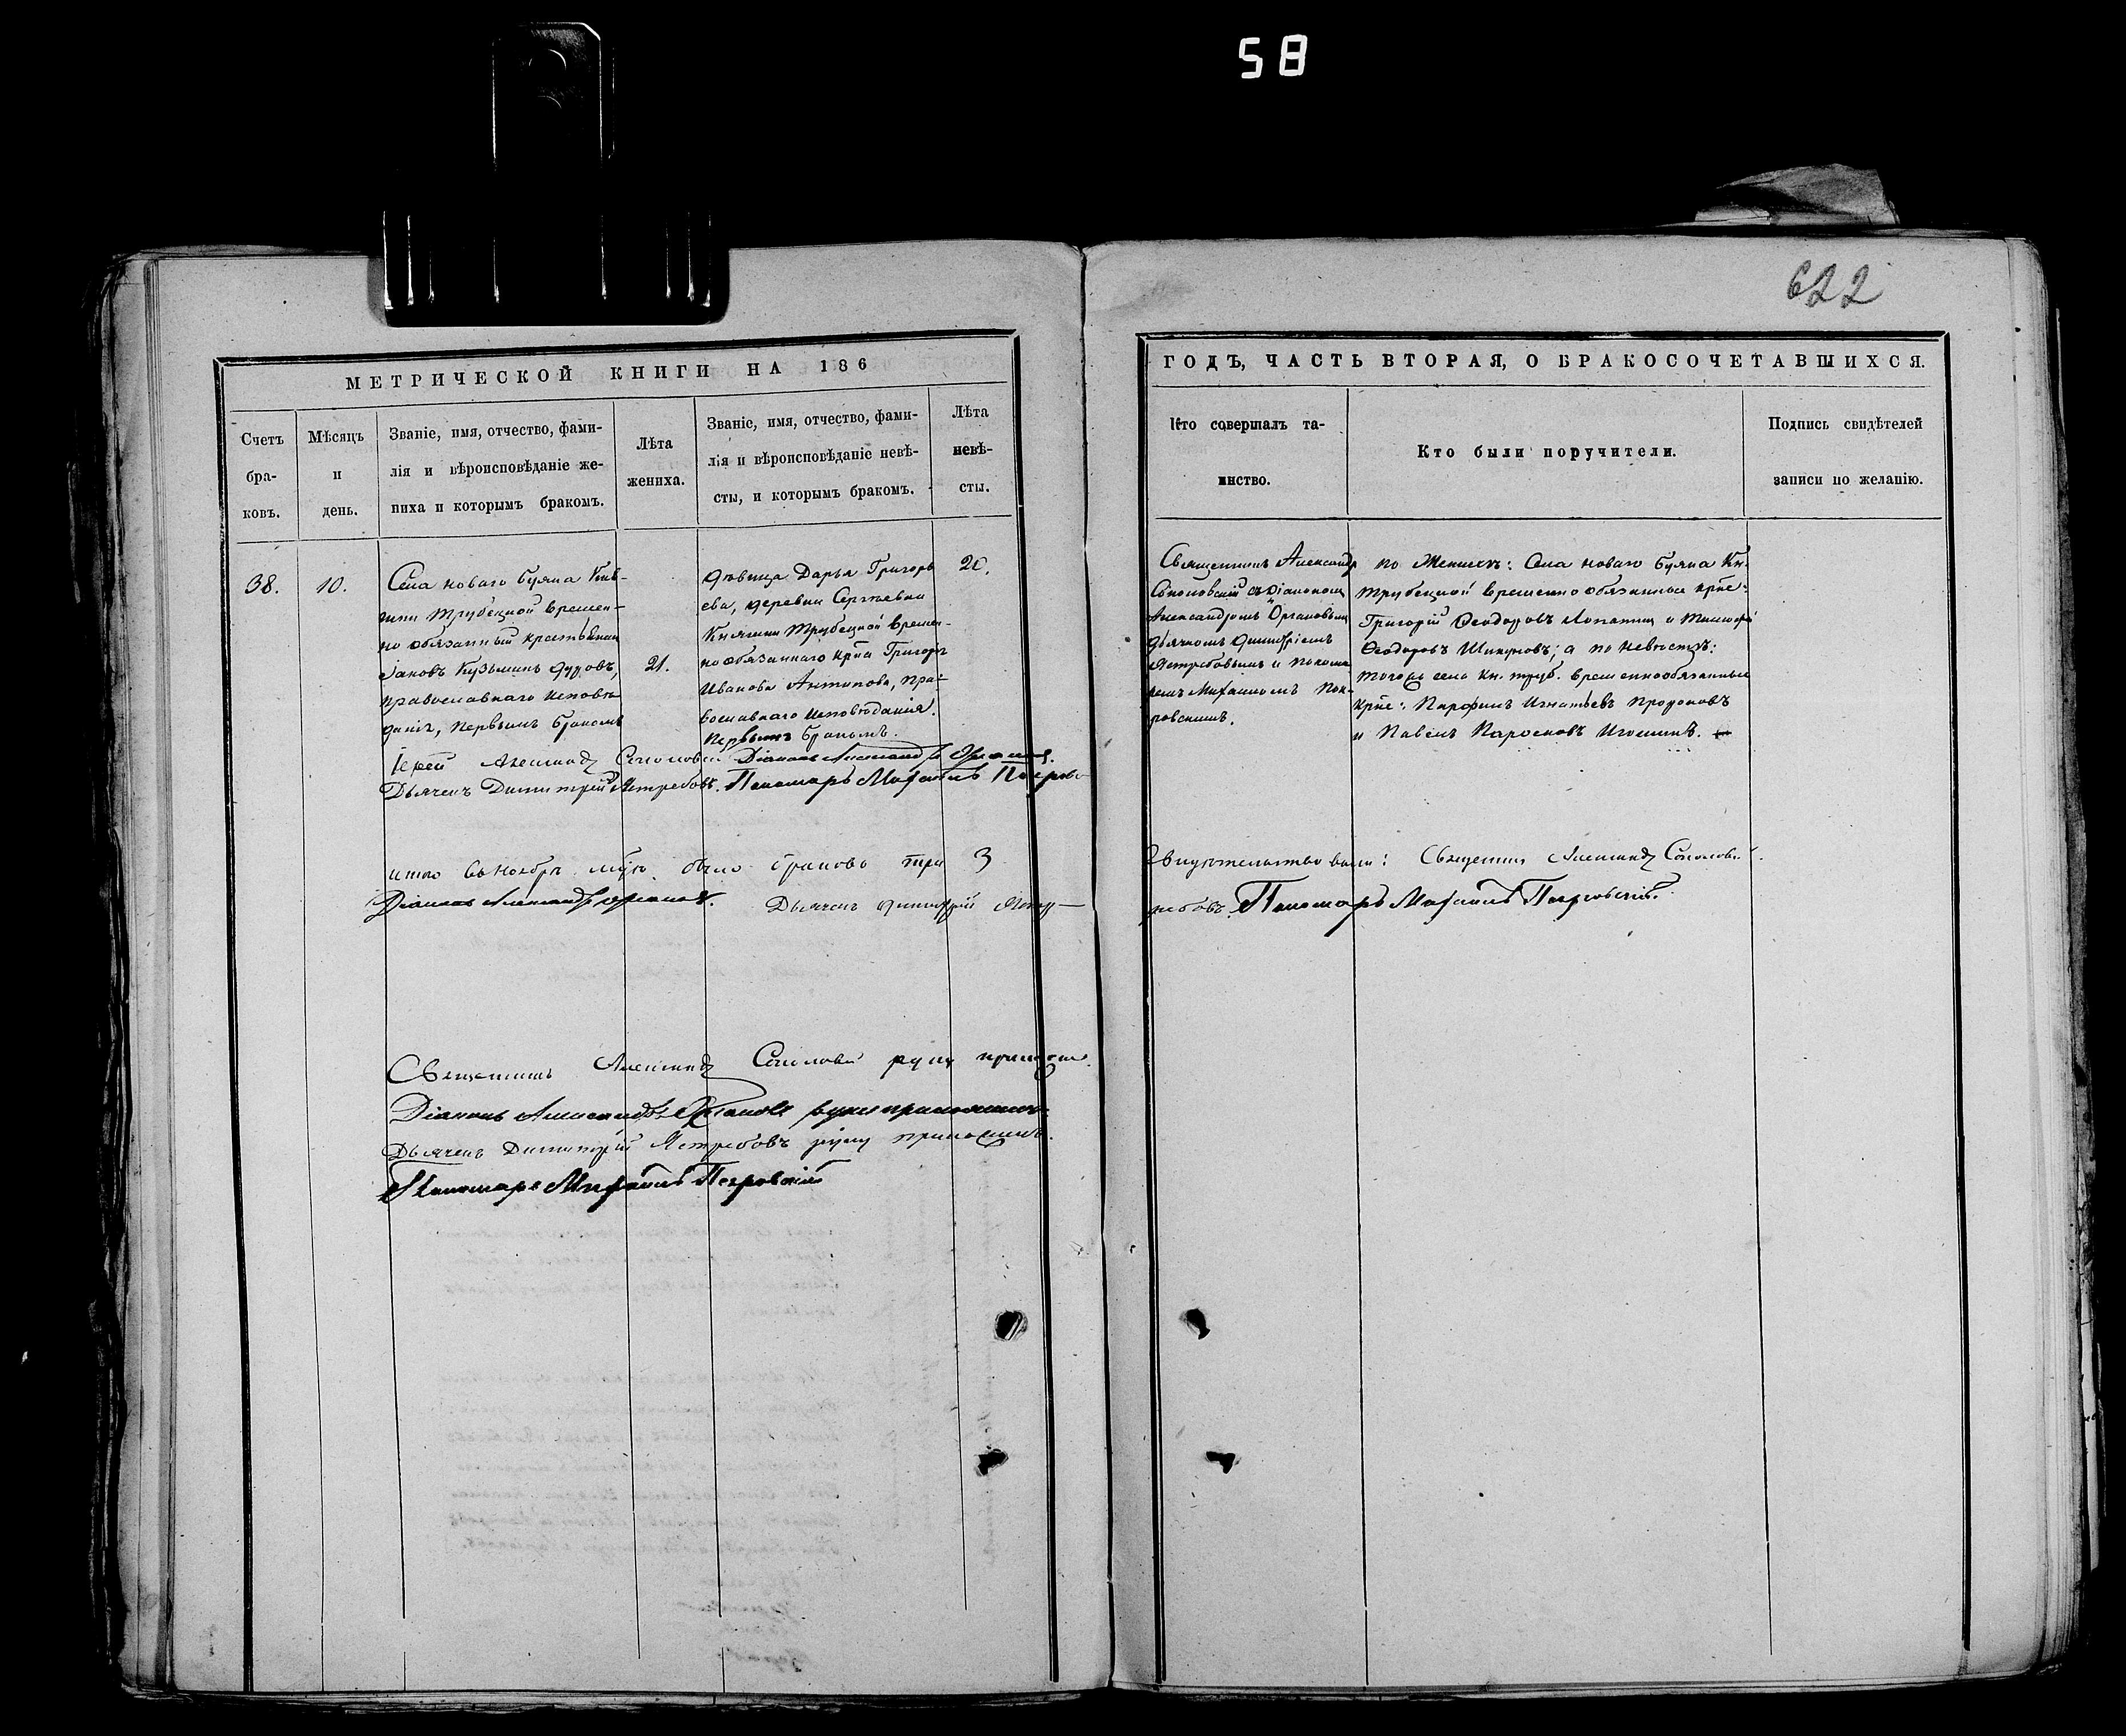 58
622
МЕТРИЧЕСКОЙ КНИГИ НА 186
Счетъ бра-ковъ.
Мѣсяцъ и день.
Званіе, имя, отчество, фами-
лія и вѣроисповѣданіе же-
ниха и которымъ бракомъ.
Лѣта жениха.
Званіе, имя, отчество, фами-
лія и вѣроисповѣданіе невѣ-
сты, и которымъ бракомъ.
Лѣта невѣ-сты.
38.
10.
Села новаго Буяна Кня-
гини Трубецкой времен-
но обязанный крестьянин
Іаковъ Кузьминъ
православнаго исповѣ-
данія, первымъ бракомъ
21.
дѣвица Дарья Григорь
ева, деревни Сергѣевки
Княгини Трубецкой времен-
но обязаннаго крна Григорія
Иванова Антипова, пра-
вославнаго исповѣданія.
первымъ бракомъ.
20.
Іерей Александр Соколовскій Діаконъ Александръ Органовъ.
Дьячекъ Димитрій Ястребовъ. Пономарь Михаилъ Покров
итого въ Ноябрѣ мцѣ было браковъ три 3
Діаконъ Александръ Органовъ. Дьячекъ Димитрій Яст-
Священникъ Александр Соколовскій руку приложи.
Діаконъ Александръ Органовъ руку приложилъ.
Дьячекъ Димитрій Ястребовъ руку приложилъ.
Пономарь Михаилъ Покровскій
ГОДЪ, ЧАСТЬ ВТОРАЯ, О БРАКОСОЧЕТАВШИХСЯ.
Кто совершалъ та-
инство.
Кто были поручители.
Подпись свидѣтелей
записи по желанію.
Священникъ Александр
Соколовскій съ Діакономъ
Александромъ Органовымъ
Дьячкомъ Димитріемъ
Ястребовымъ и понома
ремъ Михаиломъ Пок-
ровскимъ.
по Женихѣ: Села новаго Буяна Кн.
Трубецкой временно обязанные крне:
Григорій Ѳеодоровъ Лопатинъ и Тимоѳей
Ѳеодоровъ Шикуновъ; а по невѣстѣ:
тогожъ села Кн. труб. временнообязанные
крне: Парфенъ Игнатьевъ
и Павелъ
Свидѣтельствовали: Священник Александр Соколовскій.
ребовъ. Пономарь Михаилъ Покровскій.